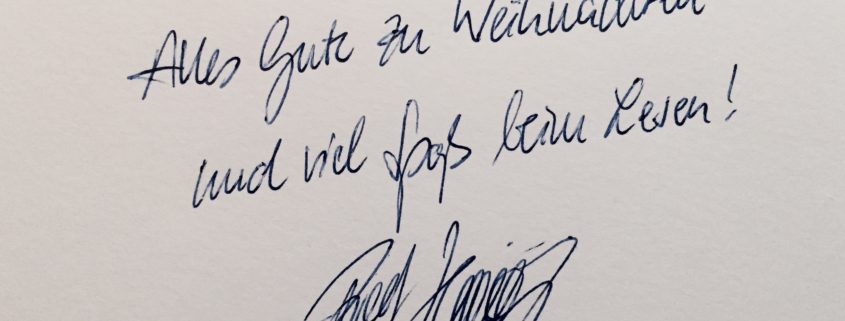 Alles Gute zu Weihnachten
und viel Spaß beim Lesen!